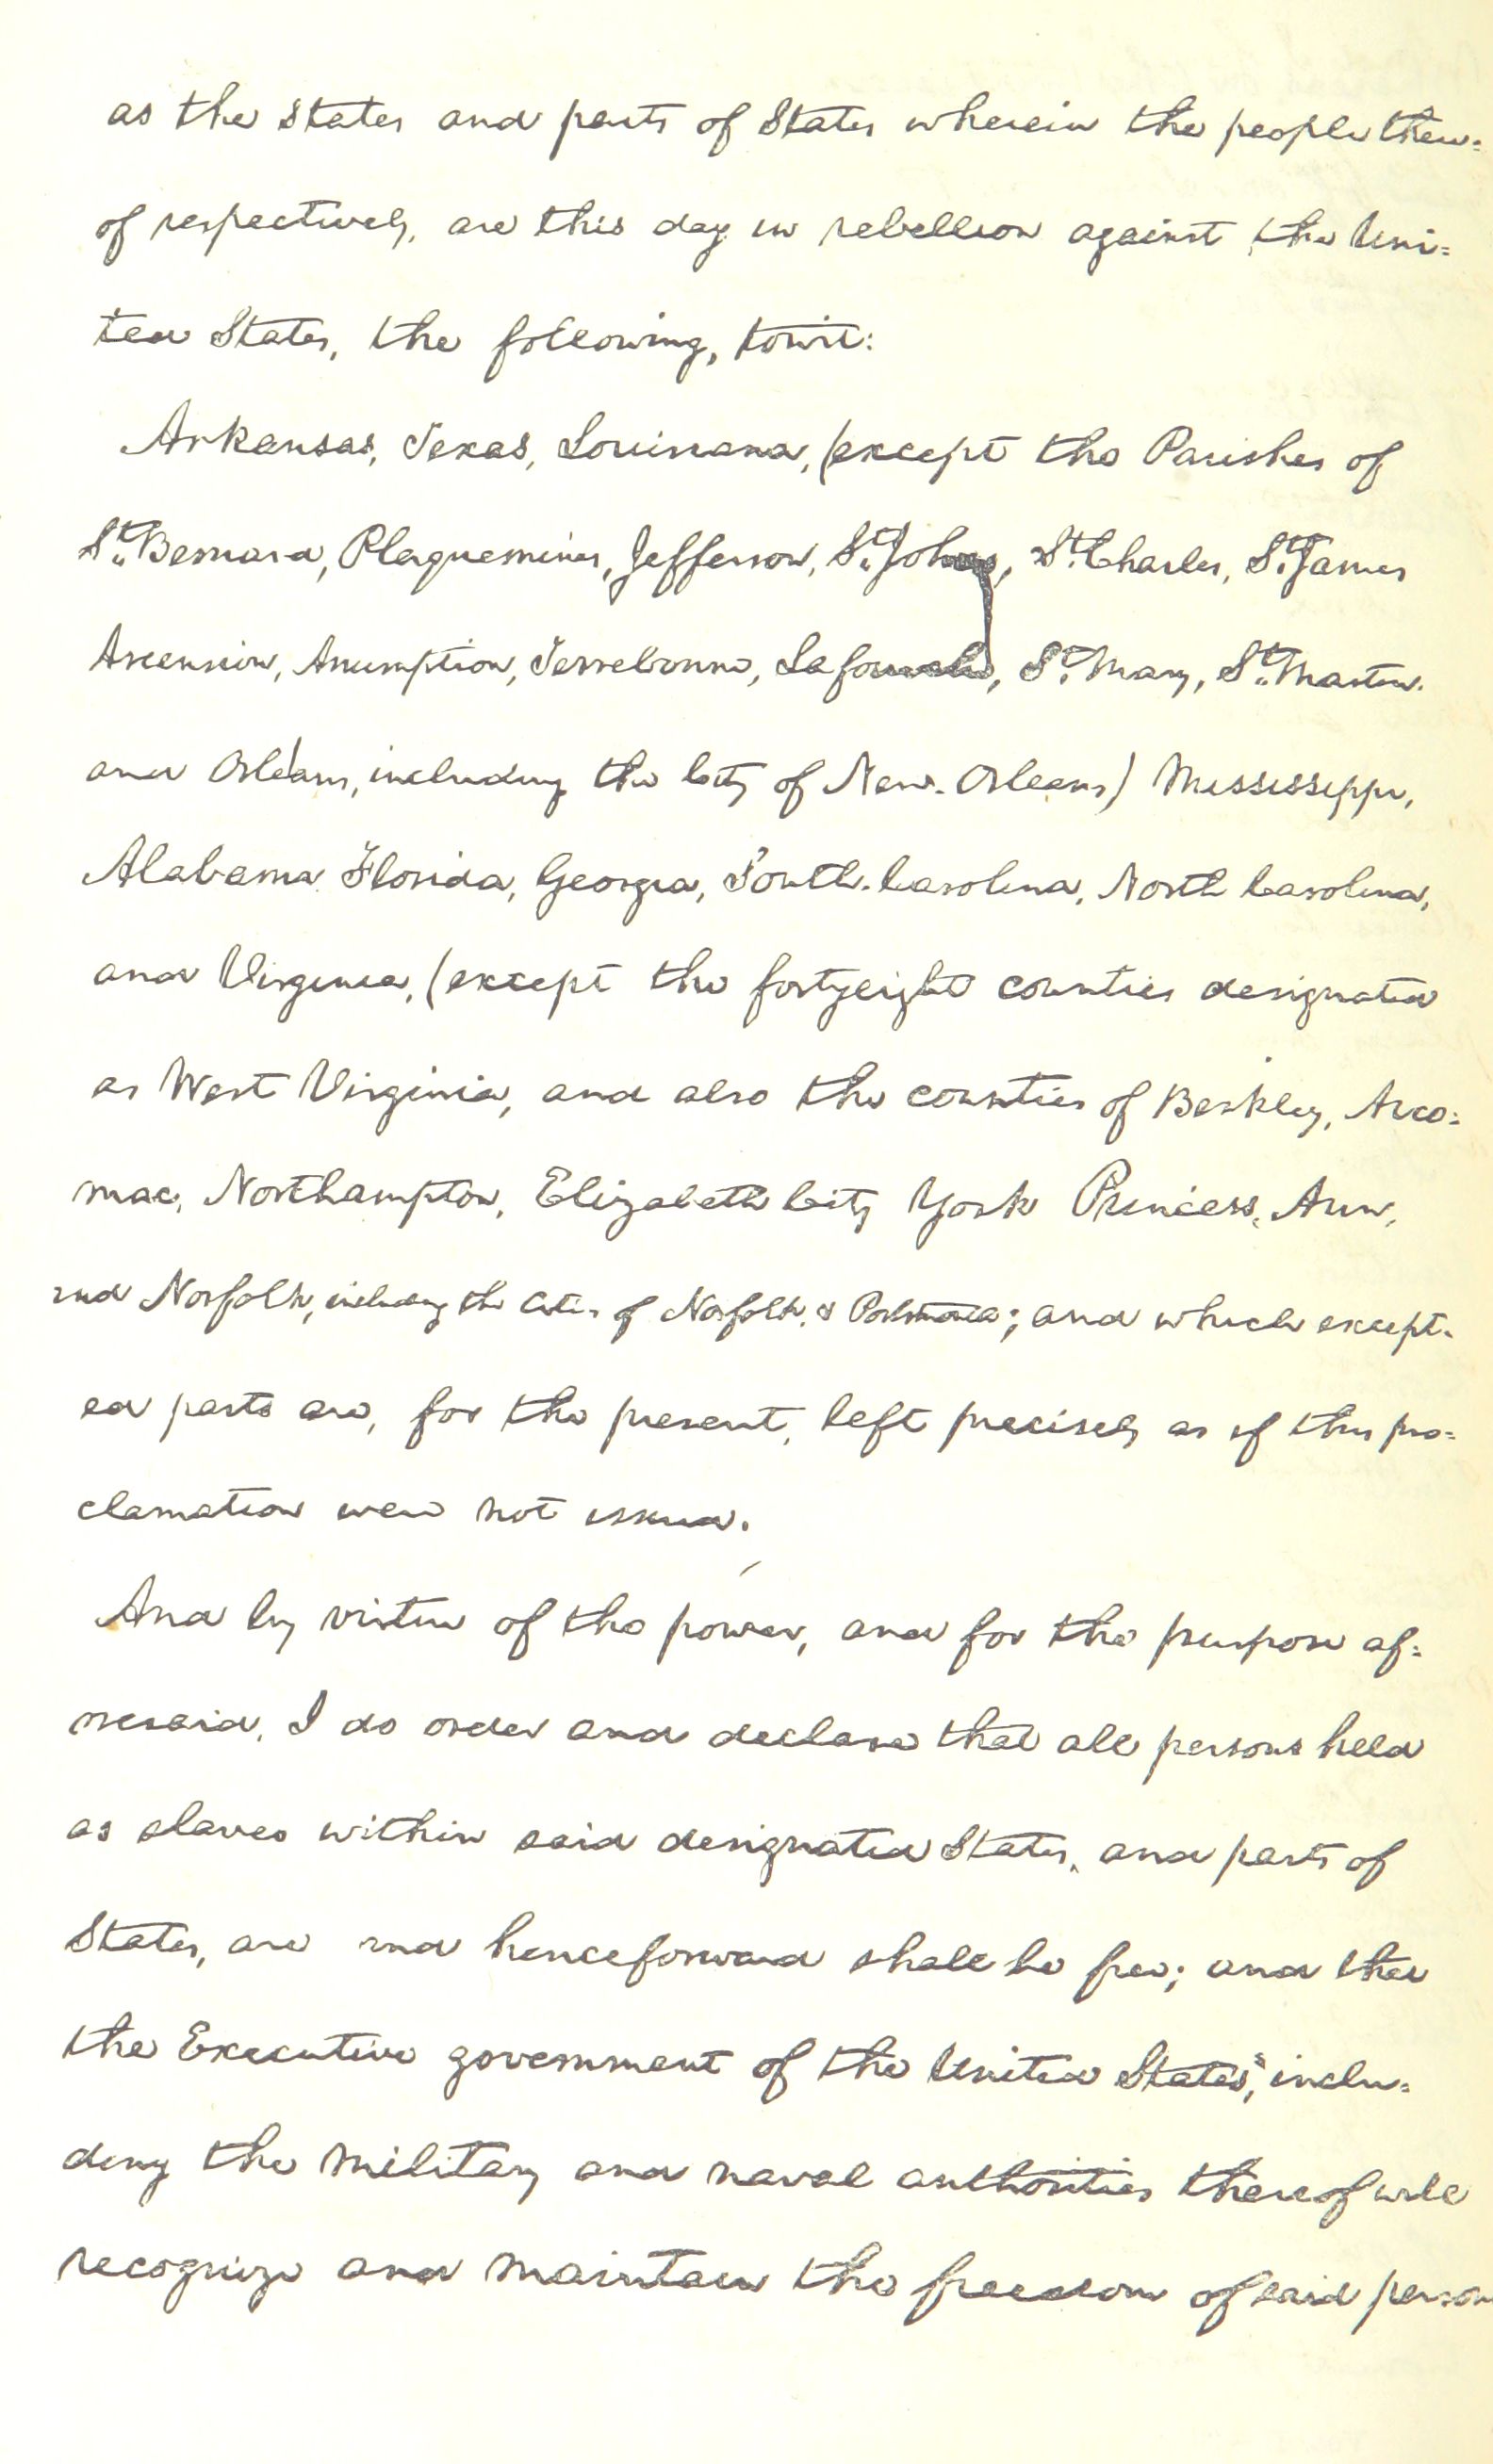 as the States and parts of States wherein the people there=
of respectively, are this day in rebellion against the Uni=
ted States, the following, towit:
Arkansas, Texas, Louisiana, (except the Parishes of
St. Bernard, Plaquemines, Jefferson, St. John, St. Charles, St. James
Ascension, Assumption, Terrebonne, Lafourche, St. Mary, St. Martin,
and Orleans, including the City of New-Orleans) Mississippi,
Alabama, Florida, Georgia, South-Carolina, North Carolina,
and Virginia, (except the fortyeight counties designated
as West Virginia, and also the counties of Berkley, Acco=
mac, Northampton, Elizabeth City, York, Princess Ann,
and Norfolk, including the cities of Norfolk, & Portsmouth; and which except-
ed parts are, for the present, left precisely as if this pro=
clamation were not issued.
And by virtue of the power, and for the purpose af=
oresaid, I do order and declare that all persons held
as slaves within said designated States, and parts of
States, are and henceforward shall be free; and that
the Executive government of the United States, inclu=
ding the military and naval authorities thereof will
recognize and maintain the freedom of said persons